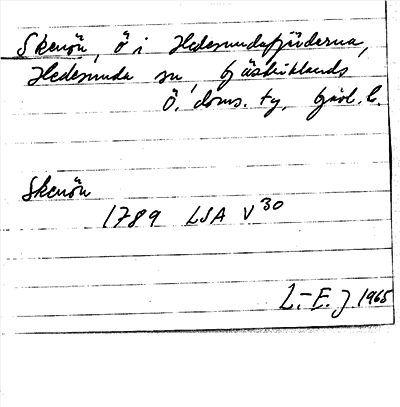 Skenön, ö i Hedesundafjärdarna,
Hedesunda sn, Gästriklands
Ö. doms. tg, Gävl. l.
Skenön
1789 LSA V 30
L.-E. J 1965